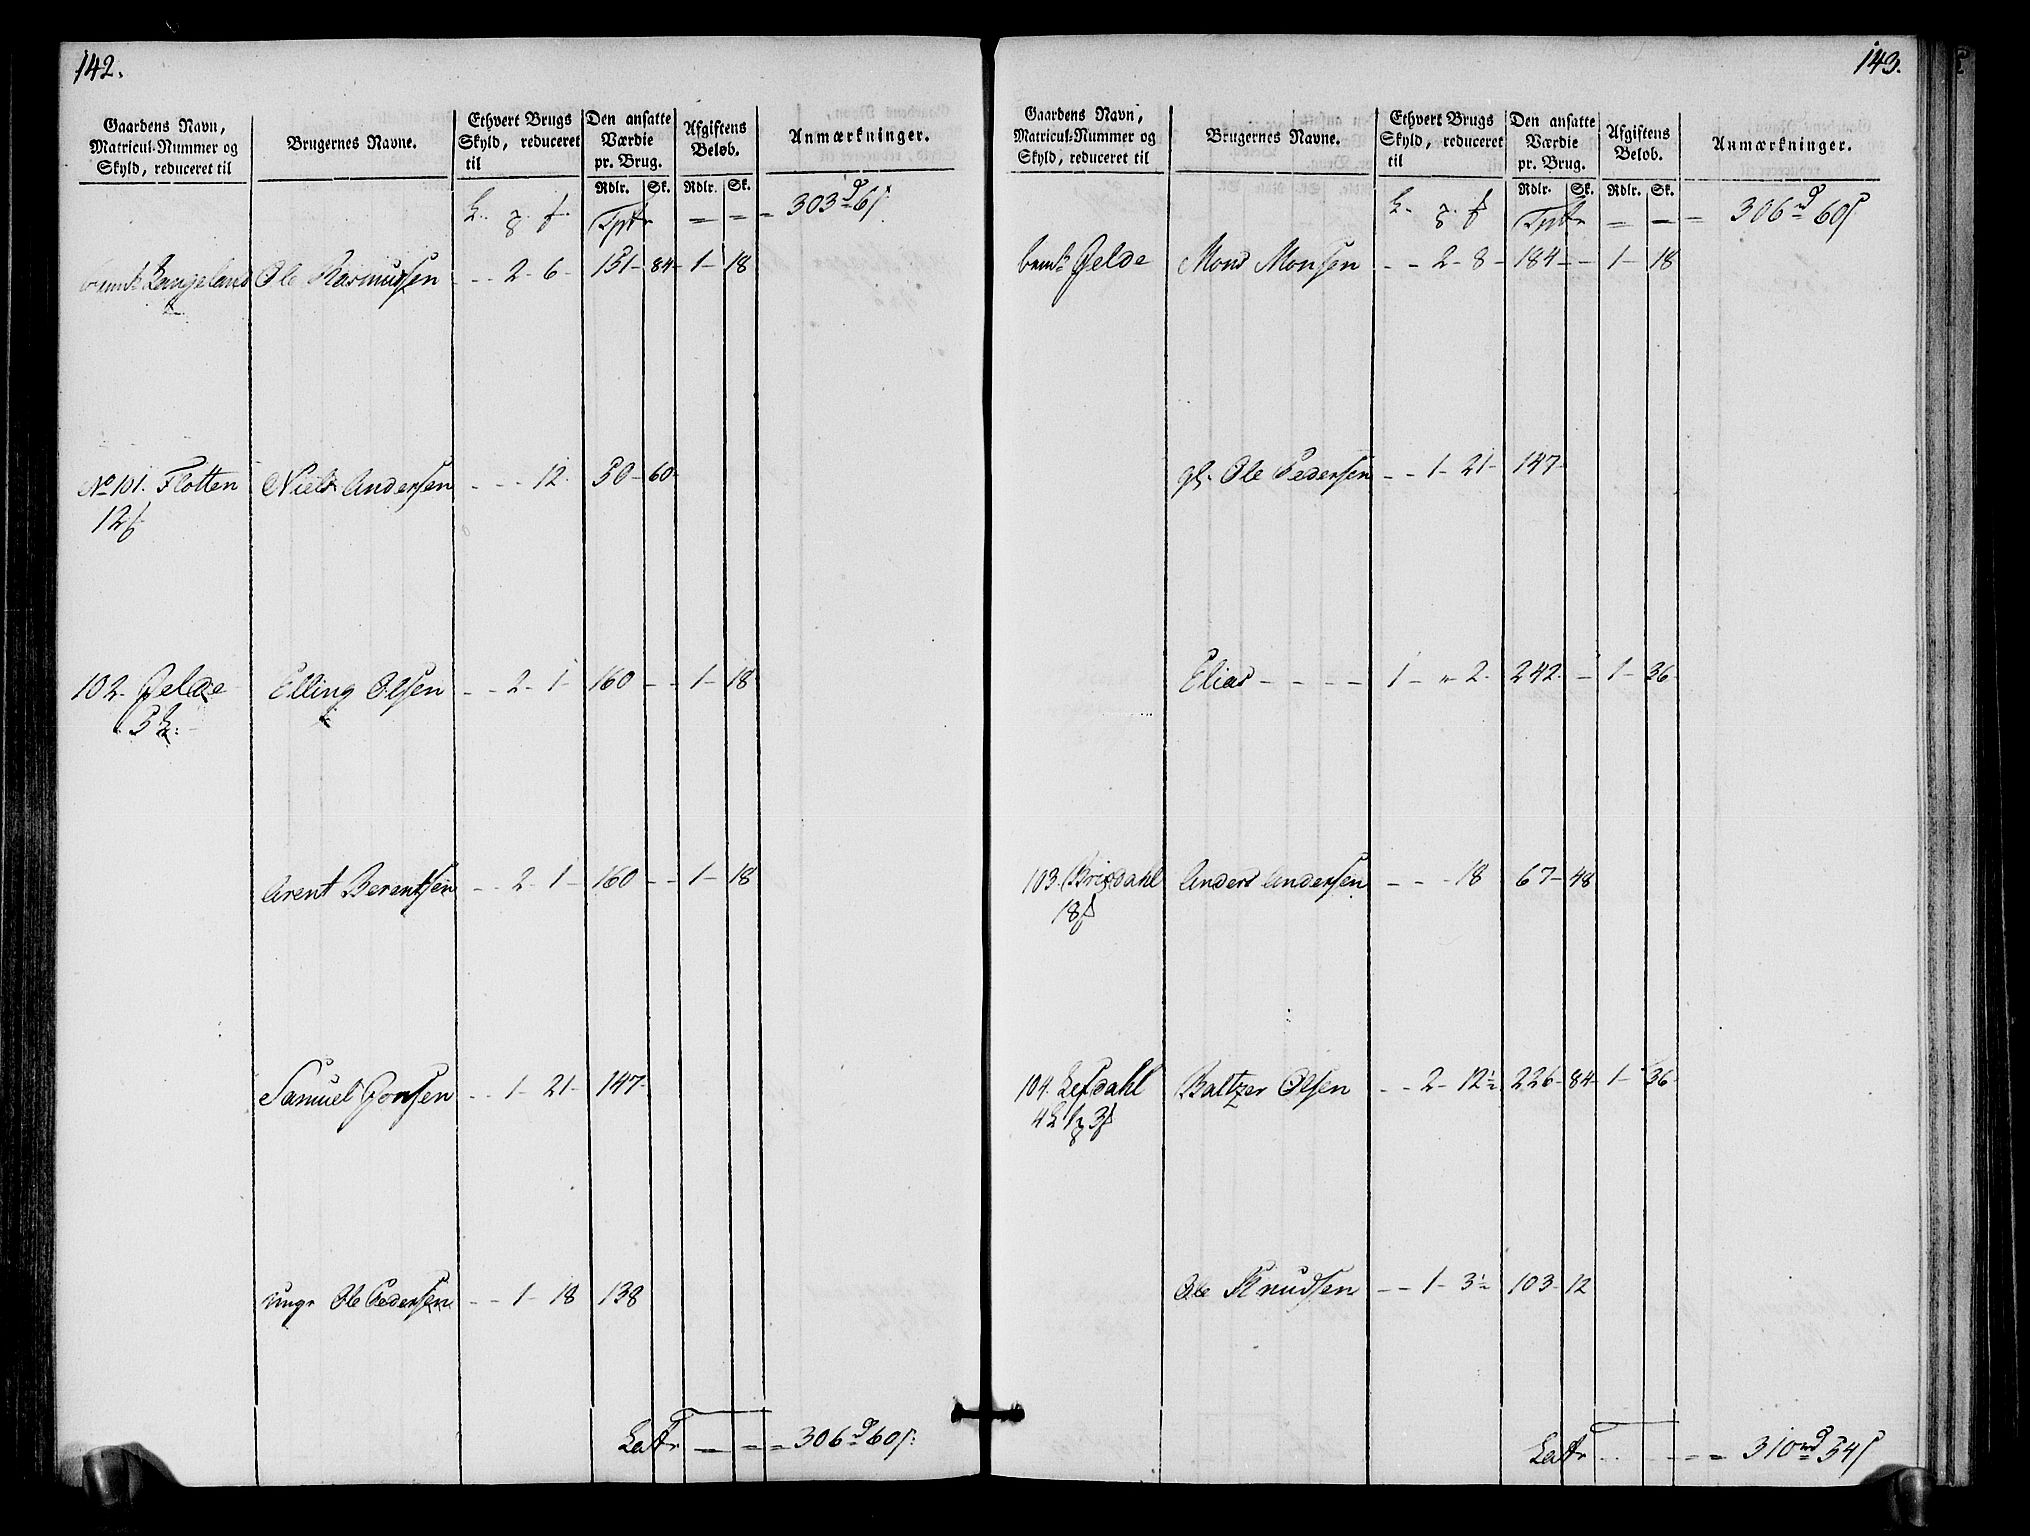 142.
Gaardens Navn, Matricul-Nummer og Skyld, reduceret til | Brugernes Navne. | Ethvert Brugs Skyld, reduceret til | Den ansatte Værdie pr. Brug. | Afgiftens Beløb. | Anmærkninger.
Rdlr. | Sk. | Rdlr. | Sk.
Tptr = = = 303 d 6 s
Langeland Ole Rasmussen - - 2 - 6 - 151 - 84 - 1 - 18
No 101. Flotten Niels Andersen - - - 12. 50 - 60 -
12 f
102. Hjelde Elling Olsen - - 2 - 1 - 160 - - 1 - 18
5 L:
Arent Berentsen - - 2 - 1 - 160 - - 1 - 18
Samuel Jonsen - - 1 - 21 - 147 -
unge Ole Pedersen - - 1 - 18 138
Latr = = = 306 d 60 s:
143.
Gaardens Navn, Matricul-Nummer og Skyld, reduceret til | Brugernes Navne. | Ethvert Brugs Skyld, reduceret til | Den ansatte Værdie pr. Brug. | Afgiftens Beløb. | Anmærkninger.
Rdlr. | Sk. | Rdlr. | Sk.
Tptr = = = 306 d 60 s
Hjelde Mons Monsen - - 2 - 8 - 184 - - 1 - 18
gl. Ole Pedersen - - 1 - 21 - 147 -
Elias - - - - 1 - " 2 - 242 - 1 - 36
103. Brixdahl Anders Andersen - - - 18 67 - 48
18 f
104. Lefdahl Baltzer Olsen - - 2 - 12 ½ 226 - 84 - 1 - 36
4 L 1 3 f
Ole Knudsen - - 1 - 3 ½ 103 - 12
Latr - - = = 310 rd 54 s